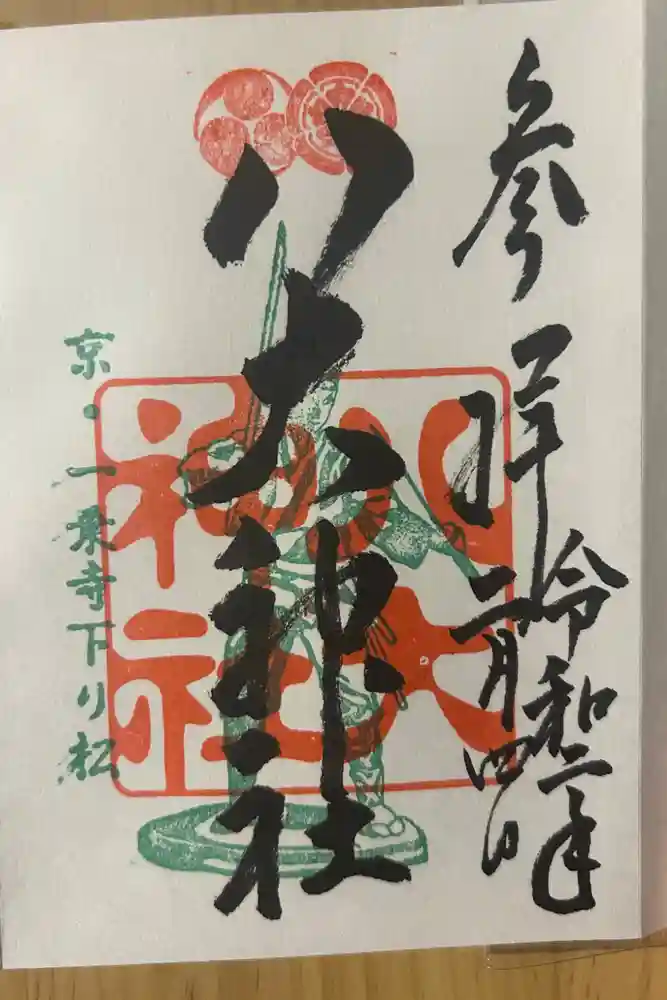 参拝
令和二年
二月四日
八大神社
八大
神社
京・一乗寺下り松